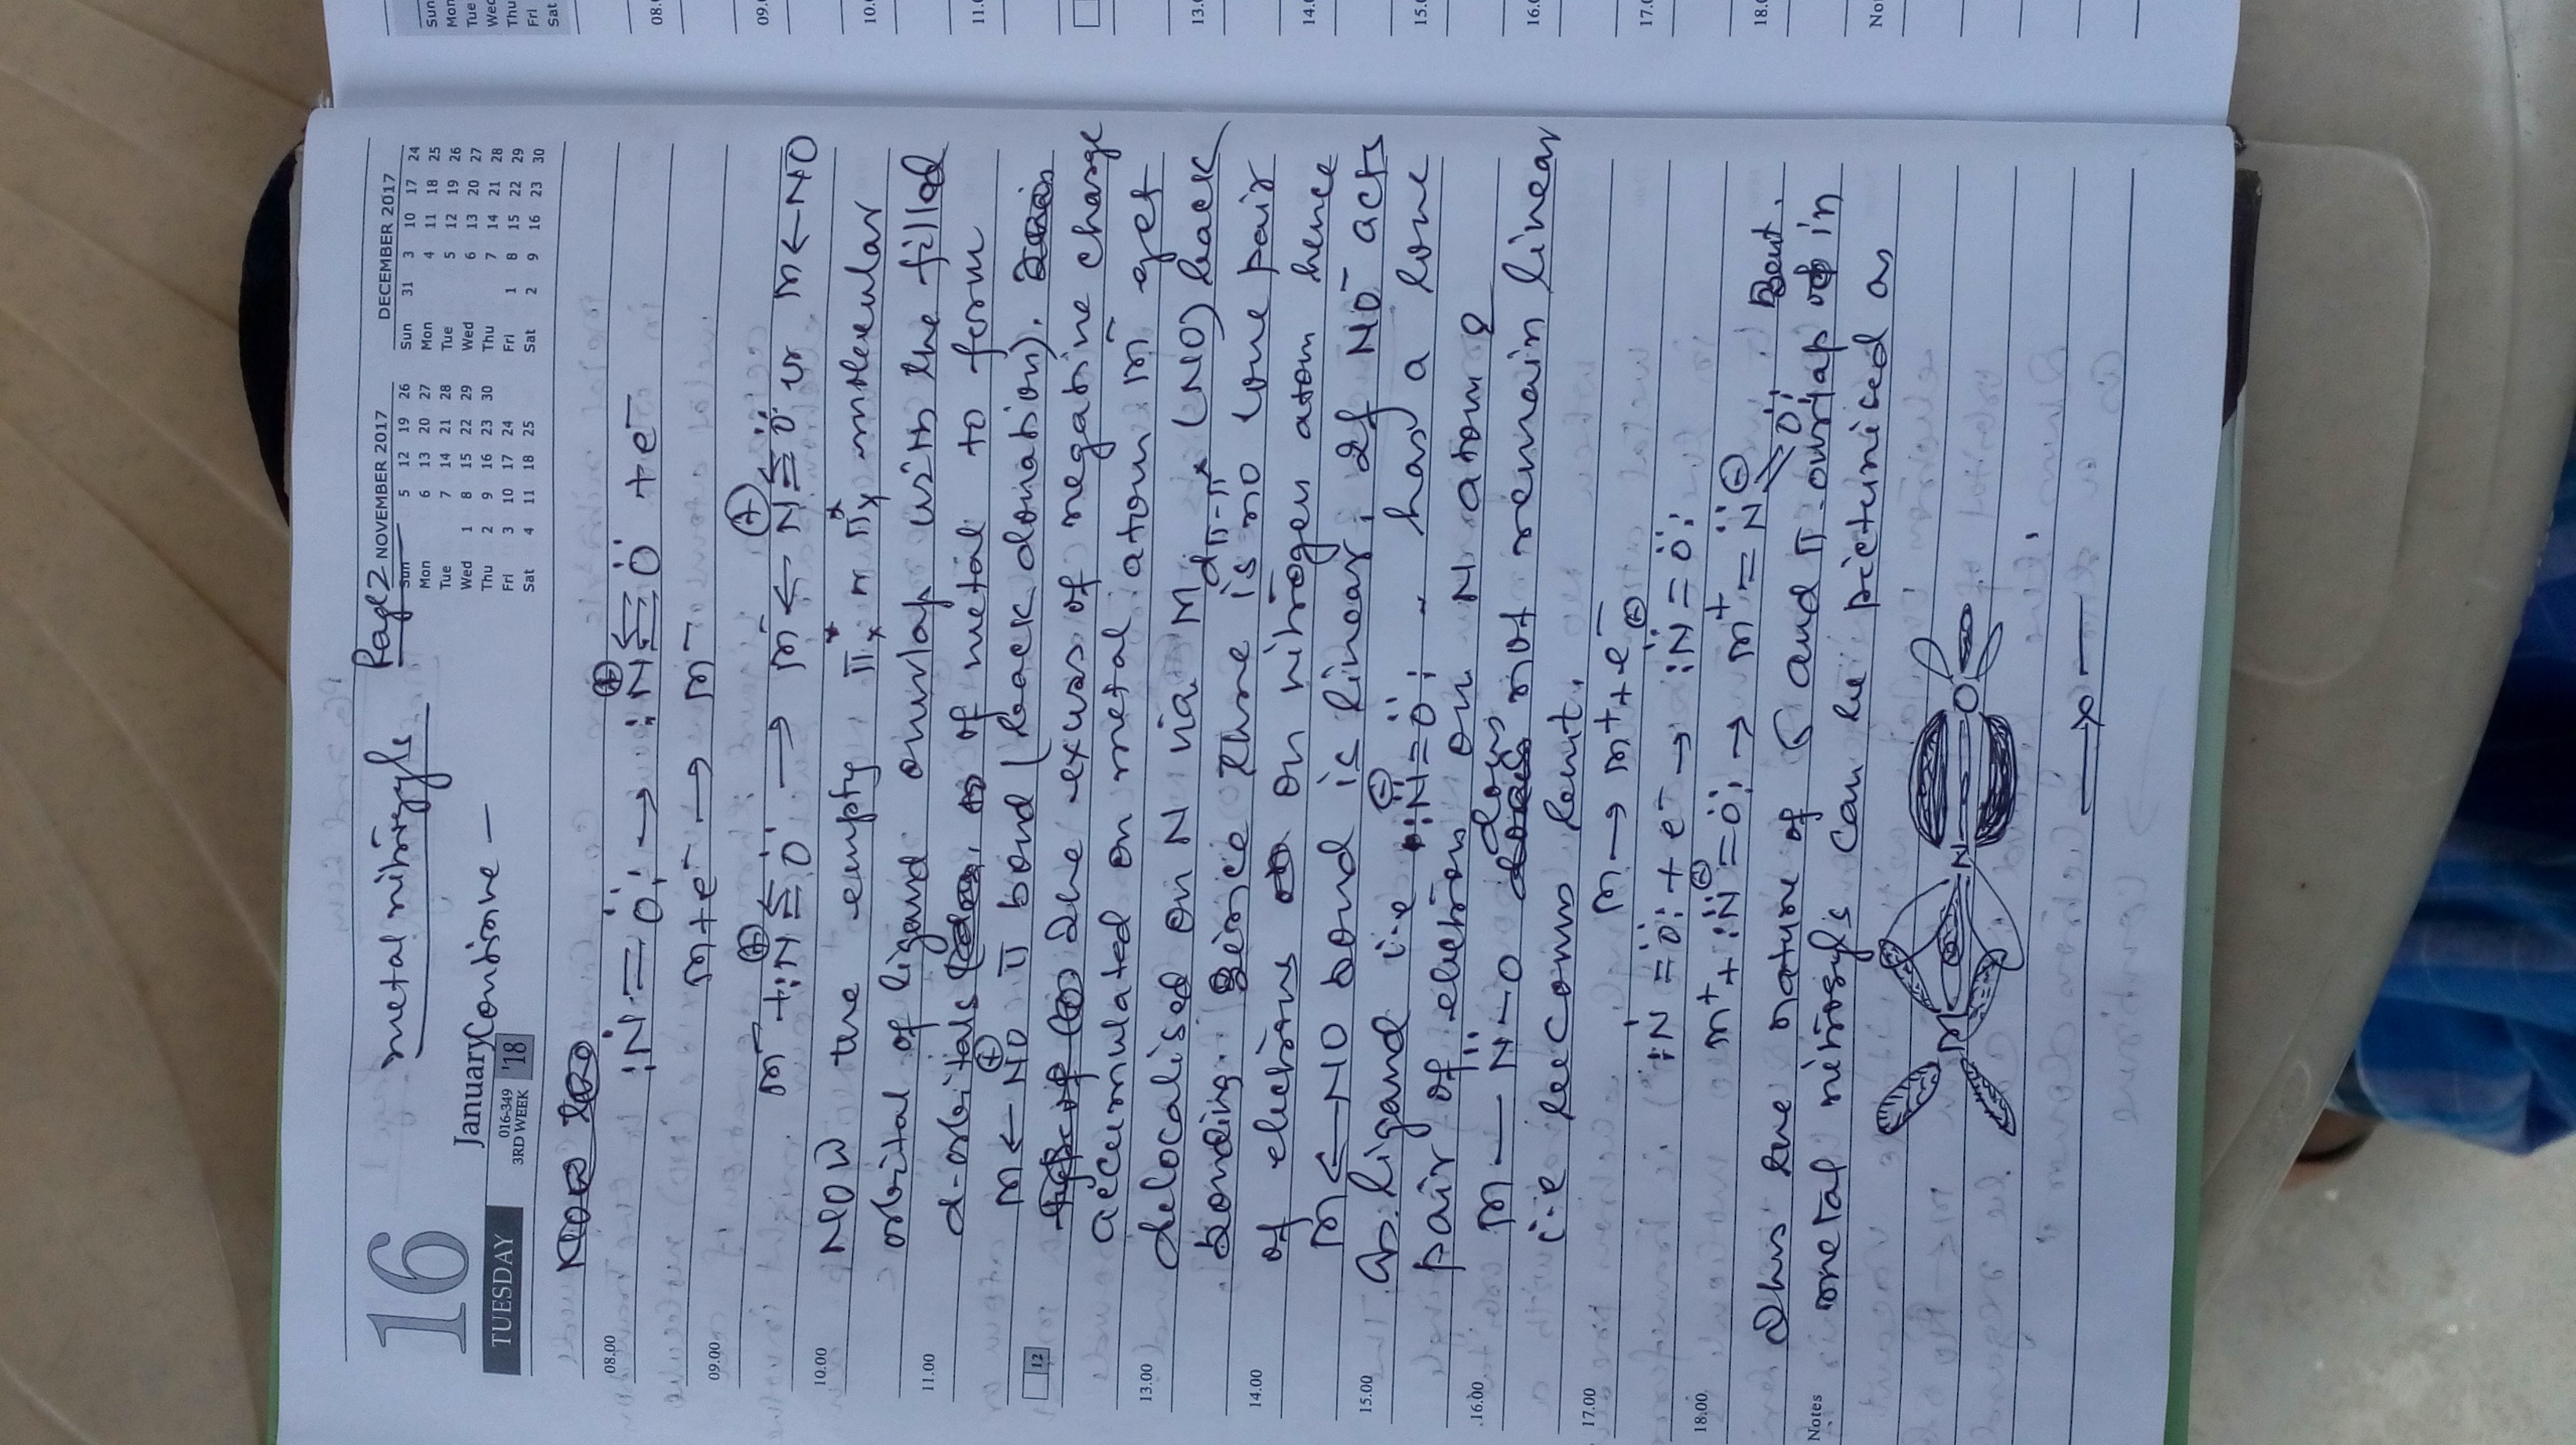 metal nitrosyls Page 2
16
TUESDAY
January
016-349
3RD WEEK
'18
Continue —
NOVEMBER 2017
Sun 5 12 19 26
Mon 6 13 20 27
Tue 7 14 21 28
Wed 1 8 15 22 29
Thu 2 9 16 23 30
Fri 3 10 17 24
Sat 4 11 18 25
DECEMBER 2017
Sun 31 3 10 17 24
Mon 4 11 18 25
Tue 5 12 19 26
Wed 6 13 20 27
Thu 7 14 21 28
Fri 1 8 15 22 29
Sat 2 9 16 23 30
08.00
:Ṅ=Ö: → :N⊕≡O: + e⁻
09.00
M+e⁻ → M⁻
M⁻ + :N⊕≡O: → M⁻ ← N⊕≡O: or M←NO
10.00
NOW the empty π*x or π*y molecular
orbital of ligand overlap with the filled
11.00
d-orbitals of metal to form
12
M ← NO⊕ π bond (back donation).
The excess of negative charge
accumulated on metal atom M⁻ get
13.00
delocalised on N via M dπ-π* (NO) back
bonding. Since There is no lone pair
14.00
of electrons on nitrogen atom hence
M←NO bond is linear, If NO⁻ acts
15.00
as ligand i.e :N̈⊖=Ö: has a lone
pair of electrons on N atom &
16.00
M — N̈—O does not remain linear
i.e becomes bent.
17.00
M → M⁺+e⁻
:Ṅ=Ö: + e⁻ → :N̈⊖=Ö:
18.00
M⁺ + :N̈⊖=Ö: → M⁺=N̈⊖=Ö: Bent.
Thus the nature of σ and π-overlap in
Notes
metal nitrosyls can be picturised as
M N O
—x—
Sun
Mon
Tue
Wed
Thu
Fri
Sat
08.
09.
10.
11.
13.
14.
15.
16.
17.
18.